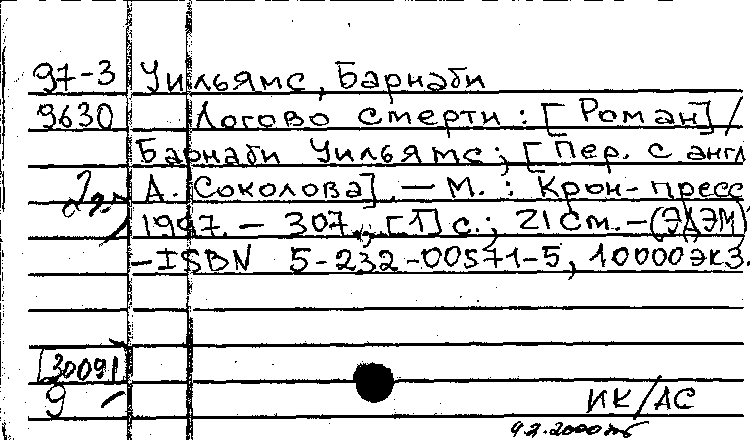 97-3 Уильямс, Барнаби
9630 Логово смерти : [Роман] /
Барнаби Уильямс; [Пер. с англ
А. Соколова]. — М. : Крон-пресс
1997. — 307, [1] с.; 21 см. — (ЭДЭМ)
— ISBN 5-232-00571-5, 10000 экз.
30091
9
ИК/АС